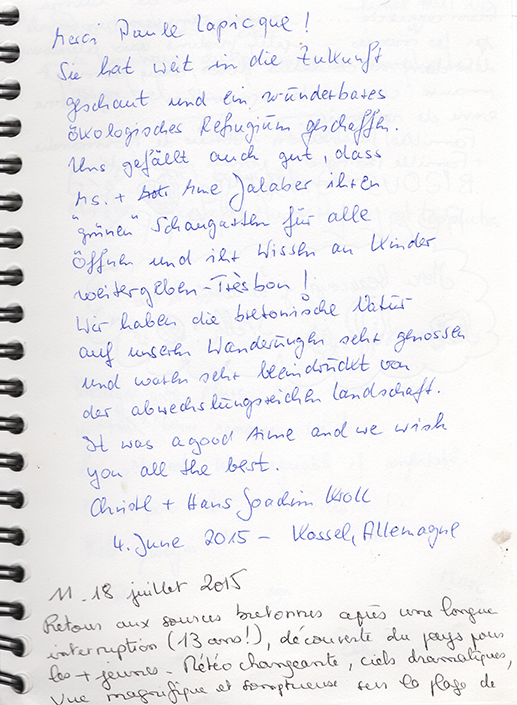 Merci Paule Lapicque !
Sie hat weit in die Zukunft
geschaut und ein wunderbares
ökologisches Refugium geschaffen.
Uns gefällt auch gut, dass
Ms. + Mme Jalaber ihren
"grünen" Schaugarten für alle
öffnen und ihr Wissen an Kinder
weitergeben - Très bon !
Wir haben die bretonische Natur
auf unseren Wanderungen sehr genossen
und waren sehr beeindruckt von
der abwechslungsreichen Landschaft.
It was a good time and we wish
you all the best.
Christl + Hans Joachim Kroll
4. June 2015 - Kassel, Allemagne
11 - 18 juillet 2015
Retour aux sources bretonnes après une longue
interruption (13 ans!), découverte du pays pour
les + jeunes - Météo changeante, ciels dramatiques,
Vue magnifique et somptueuse sur la plage de